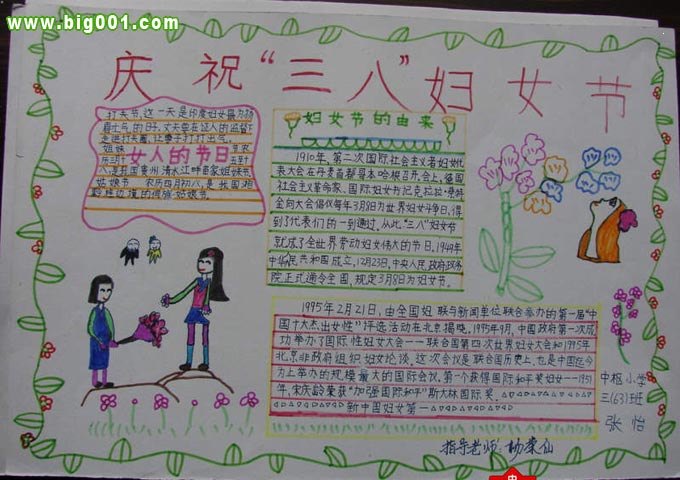 www.big001.com
庆祝“三八”妇女节
打夫节，这一天是印度妇女最为扬
眉吐气的日子，丈夫要在证人的监督下
走进打夫圈，让妻子打打出气。
姐妹
女人的节日
八，是我国贵州清水江畔苗家姐妹节
姑娘节 农历四月初八，是我国湘
黔桂边境的侗族姑娘节。
妇女节的由来
1910年，第二次国际社会主义者妇女代
表大会在丹麦首都哥本哈根召开，会上，德国
社会主义革命家、国际妇女为尼克拉拉·
向大会倡仪每年3月8日为世界妇女斗争日，得
到了代表们的一到通过，从此“三八”妇女节
就成了全世界劳动妇女伟大的节日，1949年
中华民共和国成立，12月23日，中央人民政府政务
院正式通令全国，规定3月8日为妇女节。
1995年2月21日，由全国妇联与新闻单位联合举办的第一届“中
国十大杰出女性”评选活动在北京揭晓，1995年9月，中国政府第一次成
功举办了国际性妇女大会——联合国第四次世界妇女大会和1995年
北京非政府组织妇女论谈，这次会议是联合国历史上，也是中国迄今
为止举办的规模最大的国际会议，第一个获得国际和平奖妇女——1951
年，宋庆龄荣获“加强国际和平”斯大林国际奖
新中国妇女第一
中枢小学
三(63)班
张怡
指导老师：杨荣仙